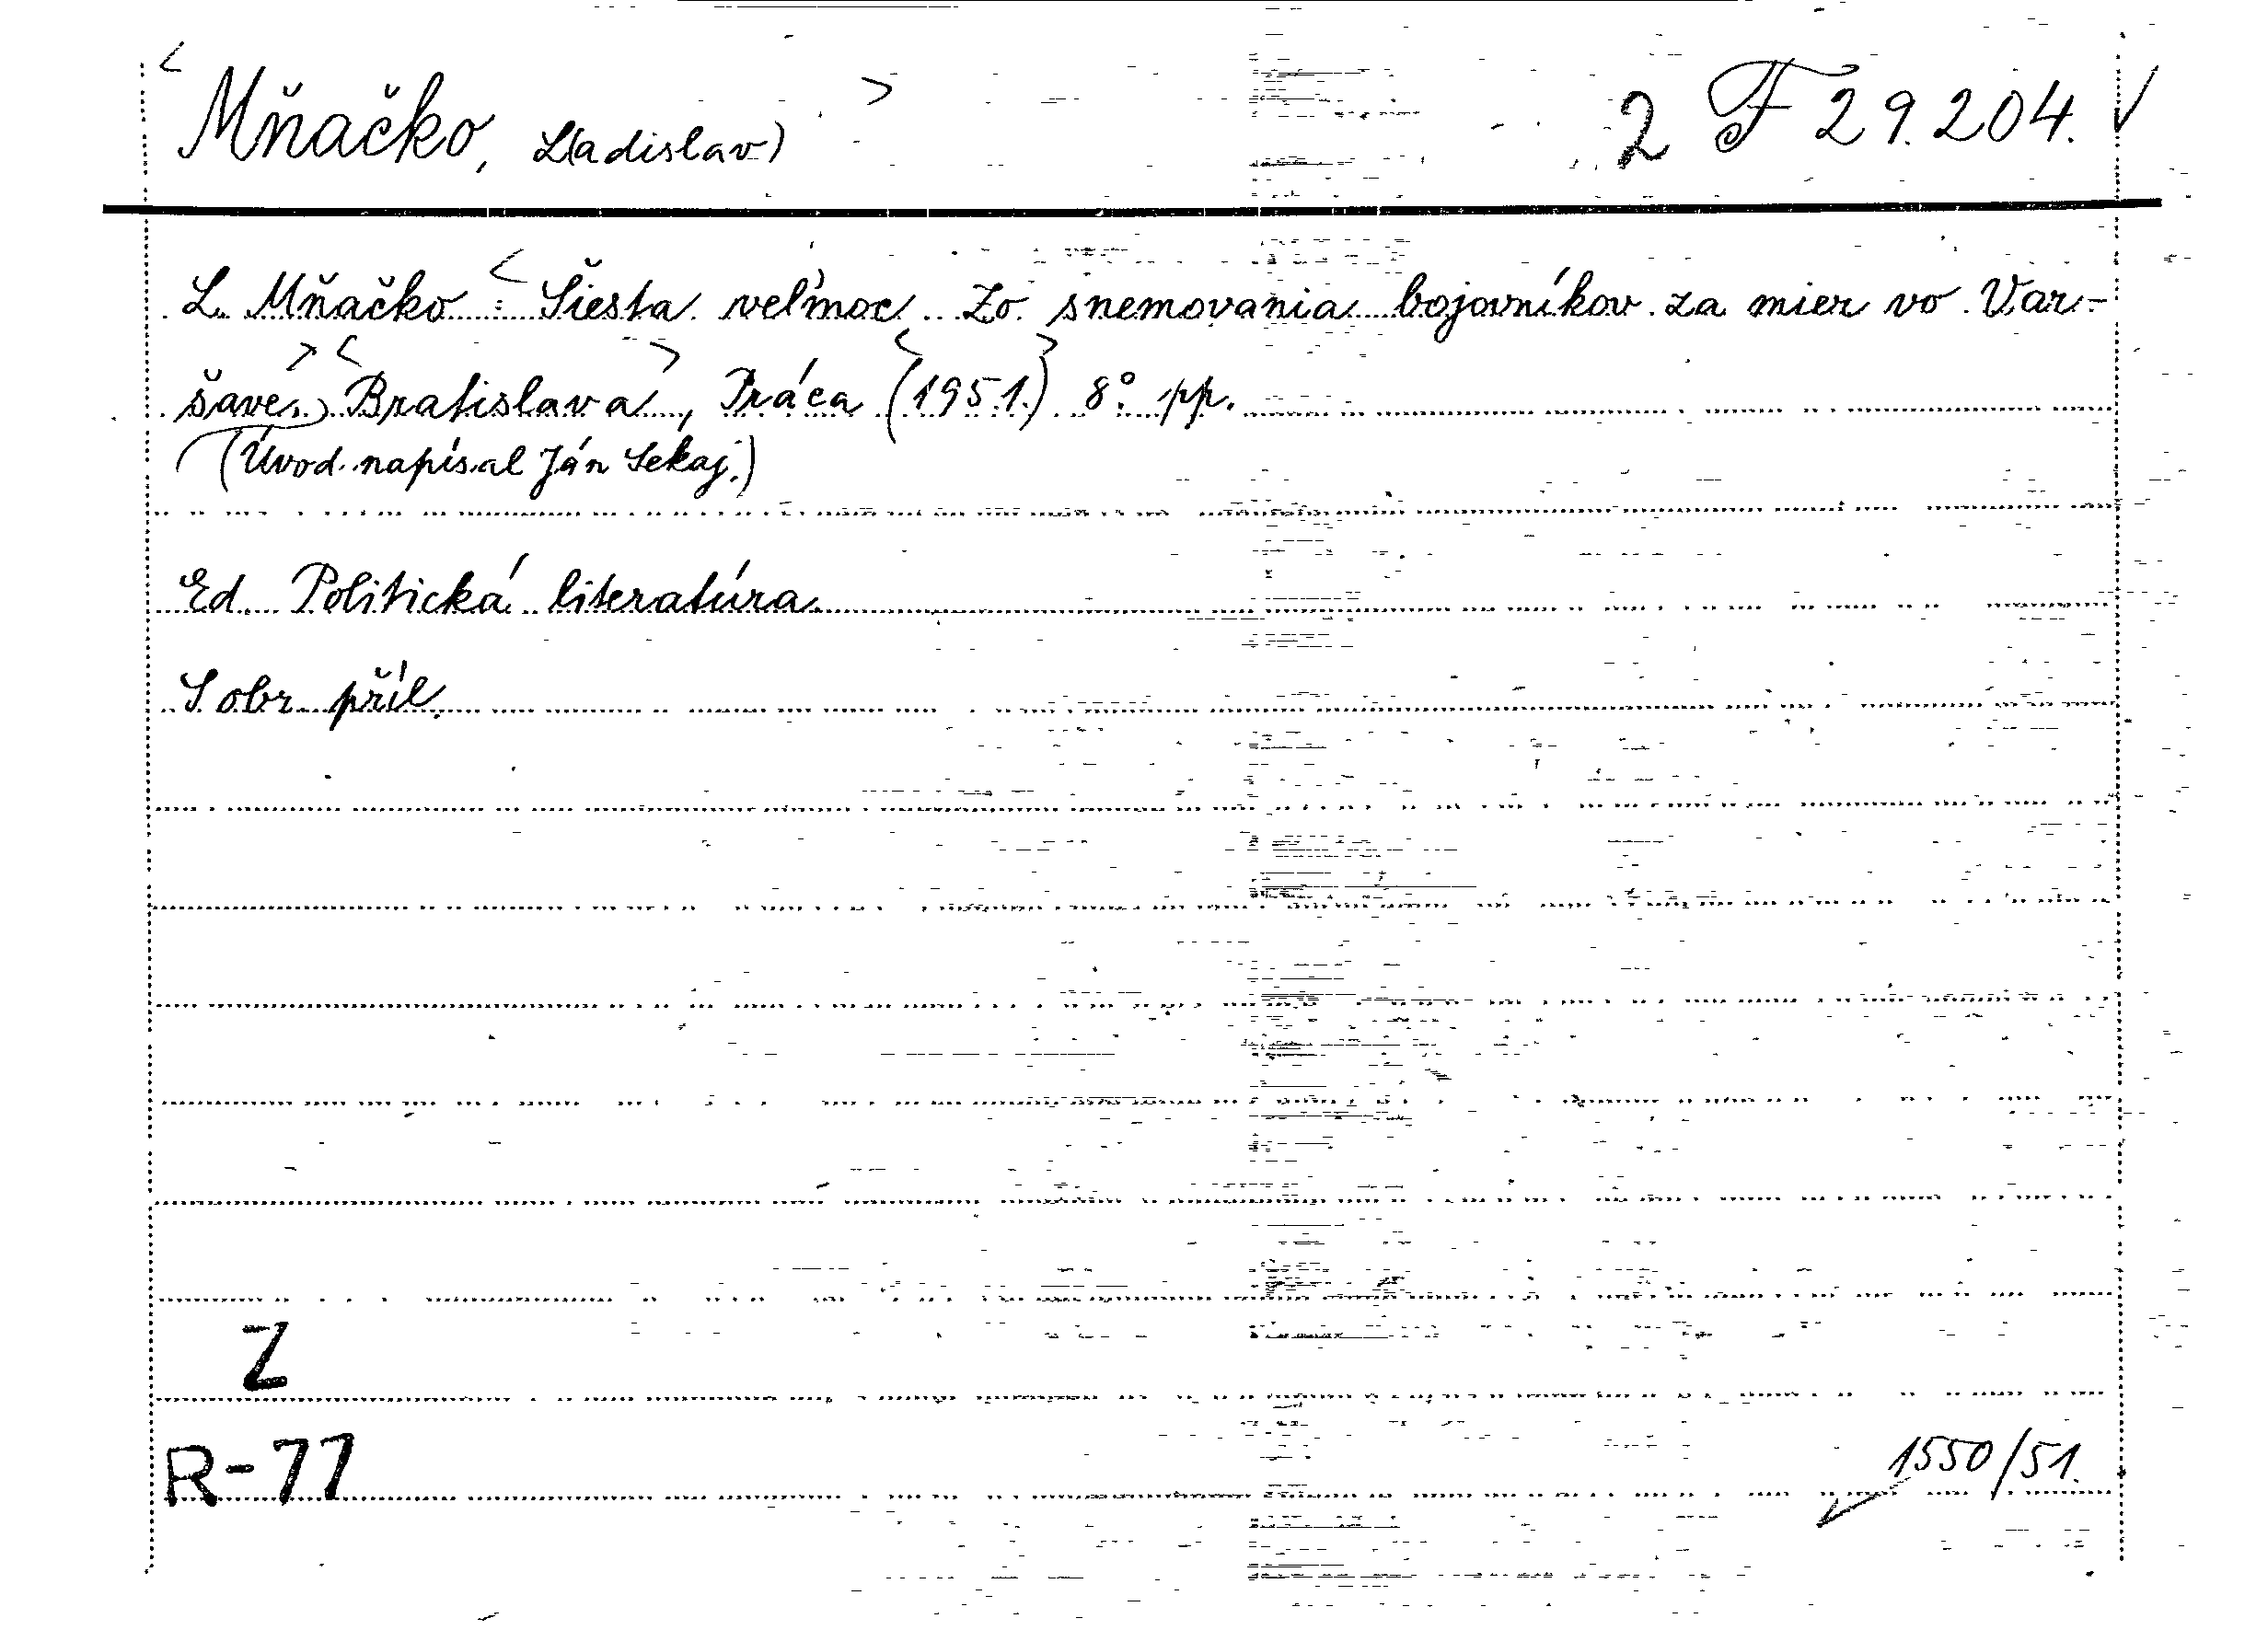 Mňačko, L(adislav) 2 F 29.204.
L. Mňačko: Šiesta veľmoc. Zo snemovania bojovníkov za mier vo Var-
šave. Bratislava, Práca (1951.) 8° pp.
(Úvod napísal Ján Sekaj.)
Ed. Politická literatúra.
S obr. příl.
Z
R-77
1550/51.